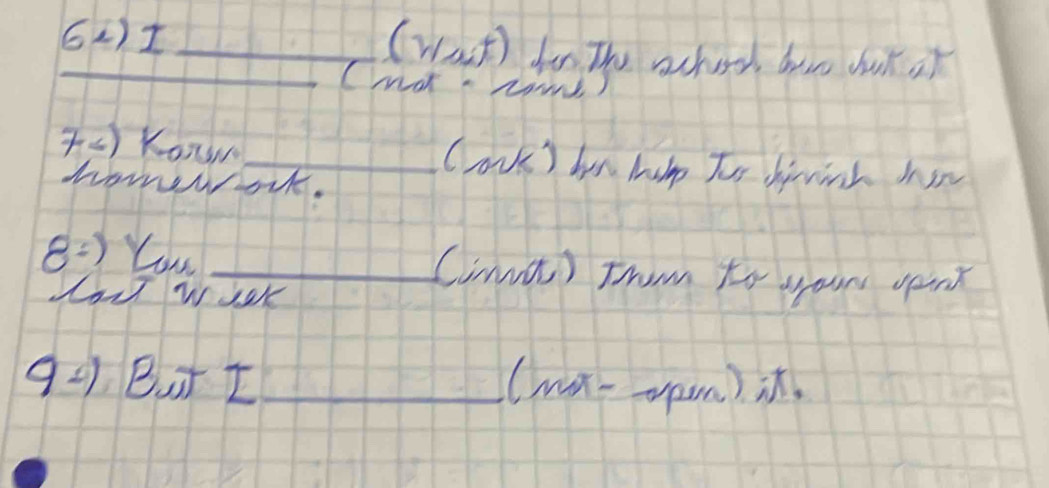 6=) I __________ (Wait) for The school bus but it
__________ (not - come)
7=) Karen __________ (ask) for help To finish her
homework.
8=) You __________ (invite) Them to your
last week
9=) But I __________ (not - open) it.